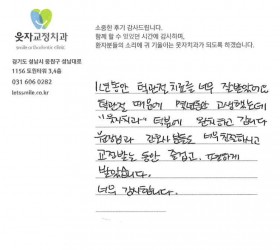 소중한 후기 감사드립니다.
함께 할 수 있었던 시간에 감사하며,
환자분들의 소리에 귀 기울이는 웃자교정치과가 되도록 하겠습니다.
웃자교정치과
경기도 성남시 분당구 성남대로
1156 도원타워 3,4층
031 606 0282
letsumile.co.kr
1년동안 턱관절 치료를 너무 잘받았어요
턱관절 때문에 몇년동안 고생했는데
"웃자치과" 덕분에 완치되고 갑니다
원장님과 간호사분들도 너무 친절하시고
교정받는 동안 즐겁고, 편하게
받았습니다.
너무 감사합니다.